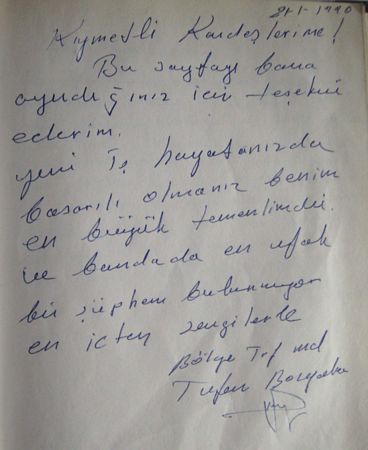 21-1-1990
Kıymetli Kardeşlerime!
Bu sayfayı bana
ayırdığınız için teşekür
ederim.
yeni İş hayatanızda
başarılı olmanız benim
en büyük temenlimdir.
ve bundada en ufak
bir şüphem bulunmıyor
en içten sevgilerle
Bölge Trf md